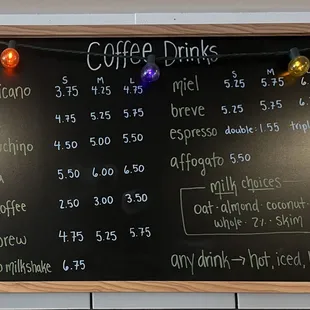 Coffee Drinks
S M L
icano 3.75 4.25 4.75
4.75 5.25 5.75
uchino 4.50 5.00 5.50
a 5.50 6.00 6.50
offee 2.50 3.00 3.50
brew 4.75 5.25 5.75
o milkshake 6.75
S M
miel 5.25 5.75 6.
breve 5.25 5.75 6
espresso double: 1.55 tripl
affogato 5.50
milk choices
oat · almond · coconut ·
whole · 2% · skim
any drink → hot, iced,